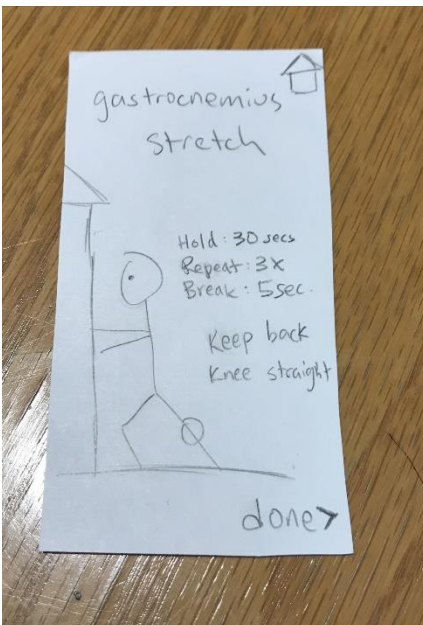 gastrocnemius
stretch
Hold: 30 secs
Repeat: 3x
Break: 5sec.
Keep back
Knee straight
done>